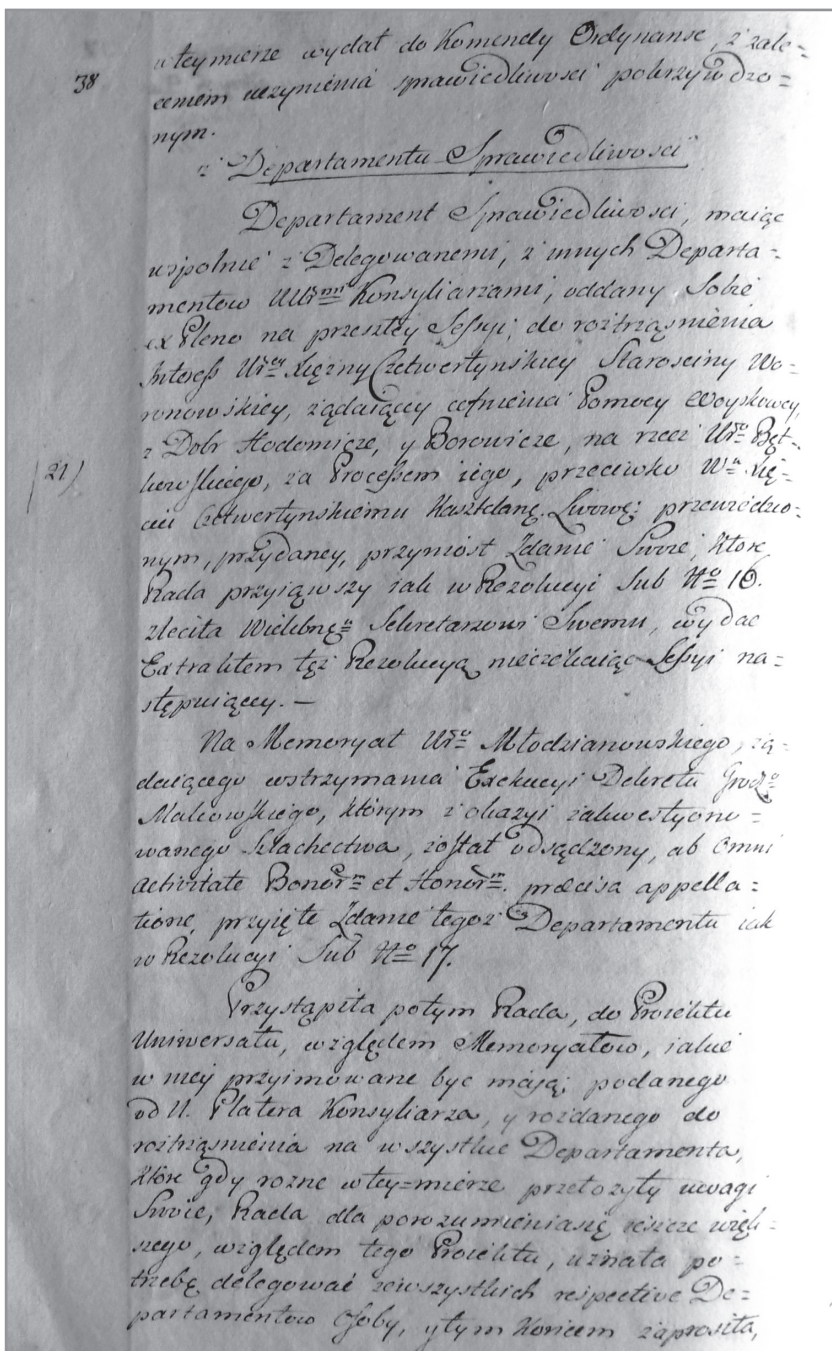 w teymierze wydał do Komendy Ordynanse, z zale=
38
ceniem uczynienia sprawiedliwosci pokrzywdzo=
nym.
z Departamentu Sprawiedliwosci
Departament Sprawiedliwosci, maiąc
wspolnie z Delegowanemi, z innych Departa=
mentow UUr. Konsyliarzami, oddany Sobie
ex Pleno na przeszłey Sessyi, do roztrząsnienia
Interess Ur. Xiężny Czetwertyńskiey Starosciny Wo=
ronowskiey, żądaiącey cofnienia Pomocy Woyskowey,
z Dobr Hodomicze, y Borowicze, na rzecz Ur.
za Processem iego, przeciwko W. Xię=
ciu Czetwertyńskiemu Kasztelanę. przewiedzio=
(21)
nym, przydaney, przyniosł Zdanie Swoie, ktore
Rada przyiąwszy iak w Rezolucyi Sub No 16.
zleciła Wielebnę Sekretarzowi Swemu, wydac
Extraktem tęż Rezolucyą nieczekaiąc Sessyi na=
stępuiącey. —
Na Memoryał Uro Młodzianowskiego, żą=
daiącego wstrzymania Exekucyi Dekretu Grodzo
Makowskiego, którym z okazyi zakwestyono=
wanego Szlachectwa, został odsądzony, ab Omni
Activitate Bonorm et Honorm. præcisa appella=
tione, przyięte Zdanie tegoz Departamentu iak
w Rezolucyi Sub No 17.
Przystąpiła potym Rada, do Proiektu
Uniwersału, względem Memoryałow, iakie
w niey przyimowane byc maią; podanego
od U. Platera Konsyliarza, y rozdanego do
roztrząsnienia na wszystkie Departamenta,
ktore gdy rozne wtey=mierze przełożyły uwagi
Swoie, Rada dla porozumieniasię ieszcze więk=
szego, względem tego Proiektu, uznała po=
trzebę delegować zewszystkich respective De=
partamentow Osoby, y tym koncem zaprosiła,